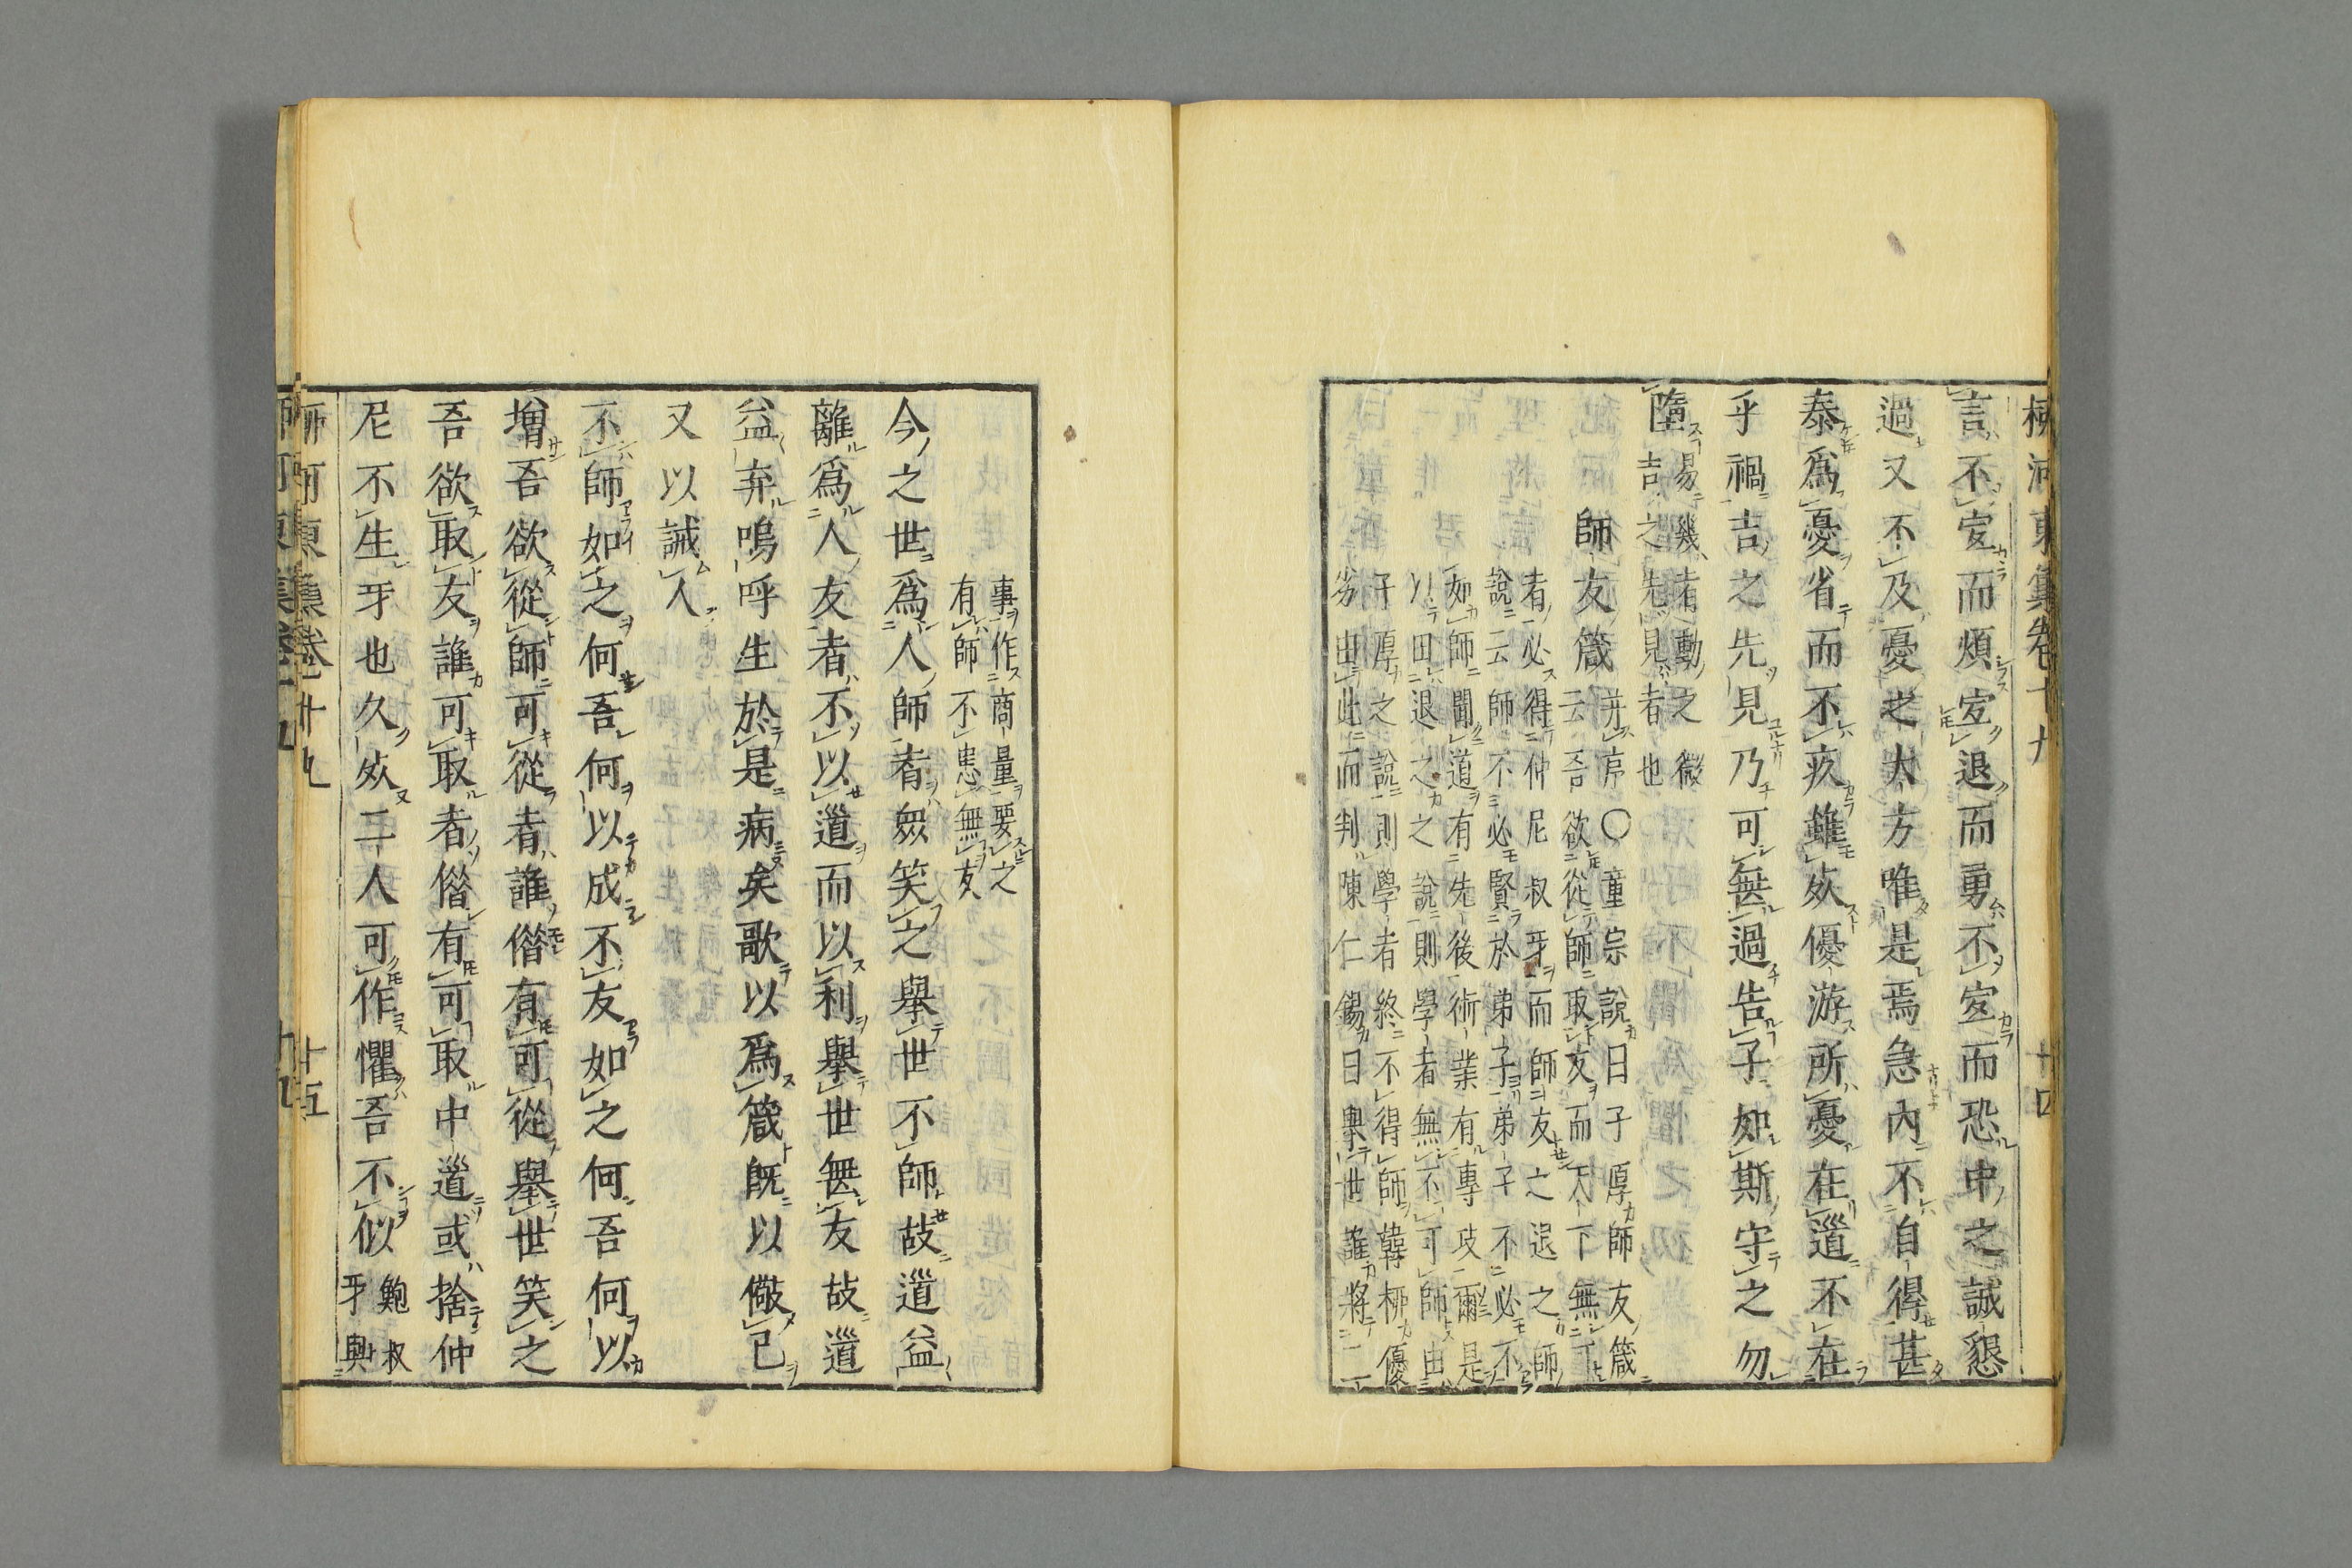 柳河東集卷十九
十四
言不宜而煩宜退而勇不宜而恐中之誠懇
過又不及憂之大方唯是焉急內不自得甚
泰爲憂省而不疚雖死優游所憂在道不在
乎禍吉之先見乃可無過告子如斯守之勿
墮
易幾者動之微
吉之先見者也
師友箴
幷序○童宗說曰子厚師友箴
云吾欲從師取友而天下無一
者必得仲尼叔牙而師友之退之師
說云師不必賢於弟子弟子不必不
如師聞道有先後術業有專攻爾是
以由退之之說則學者無不可師由
子厚之說則學者終不得師韓柳優
劣由此而判陳仁錫曰舉世誰將二
事作商量要之
有師不患無友
今之世爲人師者衆笑之舉世不師故道益
離爲人友者不以道而以利舉世無友故道
益弃嗚呼生於是病矣歌以爲箴旣以儆己
又以誡人
不師如之何吾何以成不友如之何吾何以
增吾欲從師可從者誰借有可從舉世笑之
吾欲取友誰可取者借有可取中道或捨仲
尼不生牙也久死二人可作懼吾不似
鮑叔
牙與
柳河東集卷十九
十五